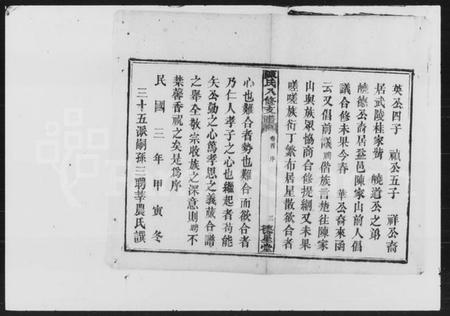 英公四子　禎公五子　祥公裔
居武陵桂家嘴　曉道公之弟
曉德公裔居益邑陳家山前人倡
議合修未果今春　華公裔來函
云又倡前議聘偕族言楚往陳家
山與族眾協商合修提綱又未果
嗟嗟族衍丁繁布居星散欲合者
陳氏八修支譜
卷首　序
二
德星堂
心也難合者勢也難合而欲合者
乃仁人孝子之心也繼起者苟能
矢公勤之心篤孝思之義蕆合譜
之舉全敦宗收族之深意則聘不
禁馨香祝之矣是爲序
民國三年甲寅冬
三十五派嗣孫三聘莘農氏譔